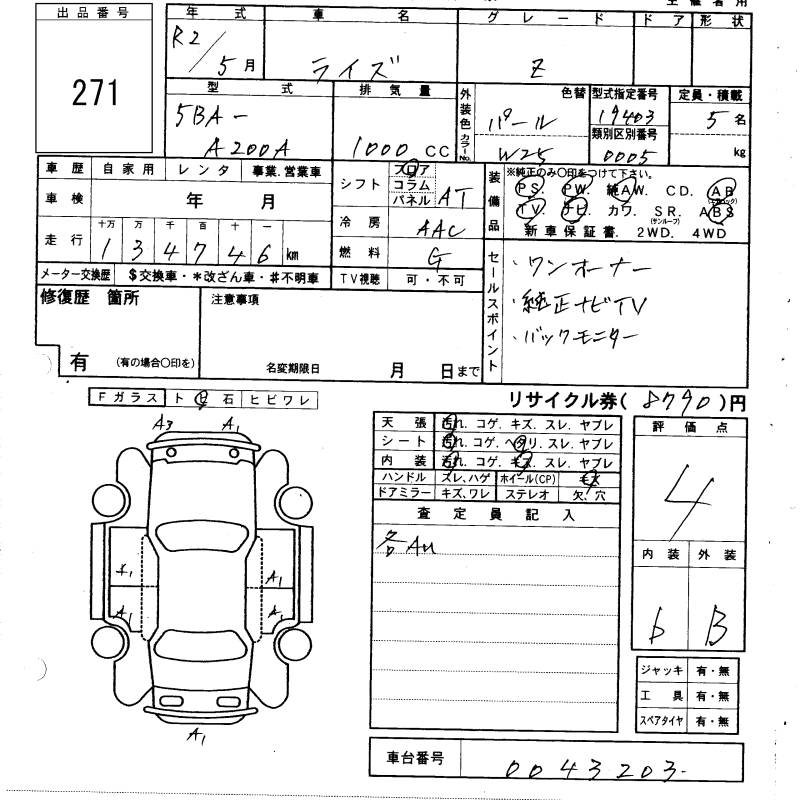 出品番号
271
年式 車名 グレード ドア 形状
R2/5月 ライズ Z
型式 排気量 外装色 カラーNo. 色替 型式指定番号 定員・積載
5BA-A200A 1000 CC パール W25 19403 5名
類別区別番号
0005 kg
車歴 自家用 レンタ 事業.営業車
車検 年 月
走行 十万 万 千 百 十 一
134746 km
メーター交換歴 $交換車・*改ざん車・#不明車
シフト フロア コラム パネル AT
冷房 AAC
燃料 G
TV視聴 可・不可
装備品 ※純正のみ〇印をつけて下さい。
PS. PW. 純AW. CD. AB(エアバック)
TV. ナビ. カワ. SR.(サンルーフ) ABS
新車保証書. 2WD. 4WD
セールスポイント
・ワンオーナー
・純正ナビTV
・バックモニター
修復歴 箇所
有 (有の場合〇印を)
注意事項
名変期限日 月 日まで
リサイクル券(8790)円
Fガラス ト ビ 石 ヒビワレ
A3 A1
A1 A1
A1 A1
A1
天張 汚れ. コゲ. キズ. スレ. ヤブレ
シート 汚れ. コゲ. ヘタリ. スレ. ヤブレ
内装 汚れ. コゲ. キズ. スレ. ヤブレ
ハンドル スレ、ハゲ ホイール(CP) キズ
ドアミラー キズ、ワレ ステレオ 欠. 穴
査定員記入
各AU
評価点
4
内装 外装
b B
ジャッキ 有・無
工具 有・無
スペアタイヤ 有・無
車台番号 0043203-